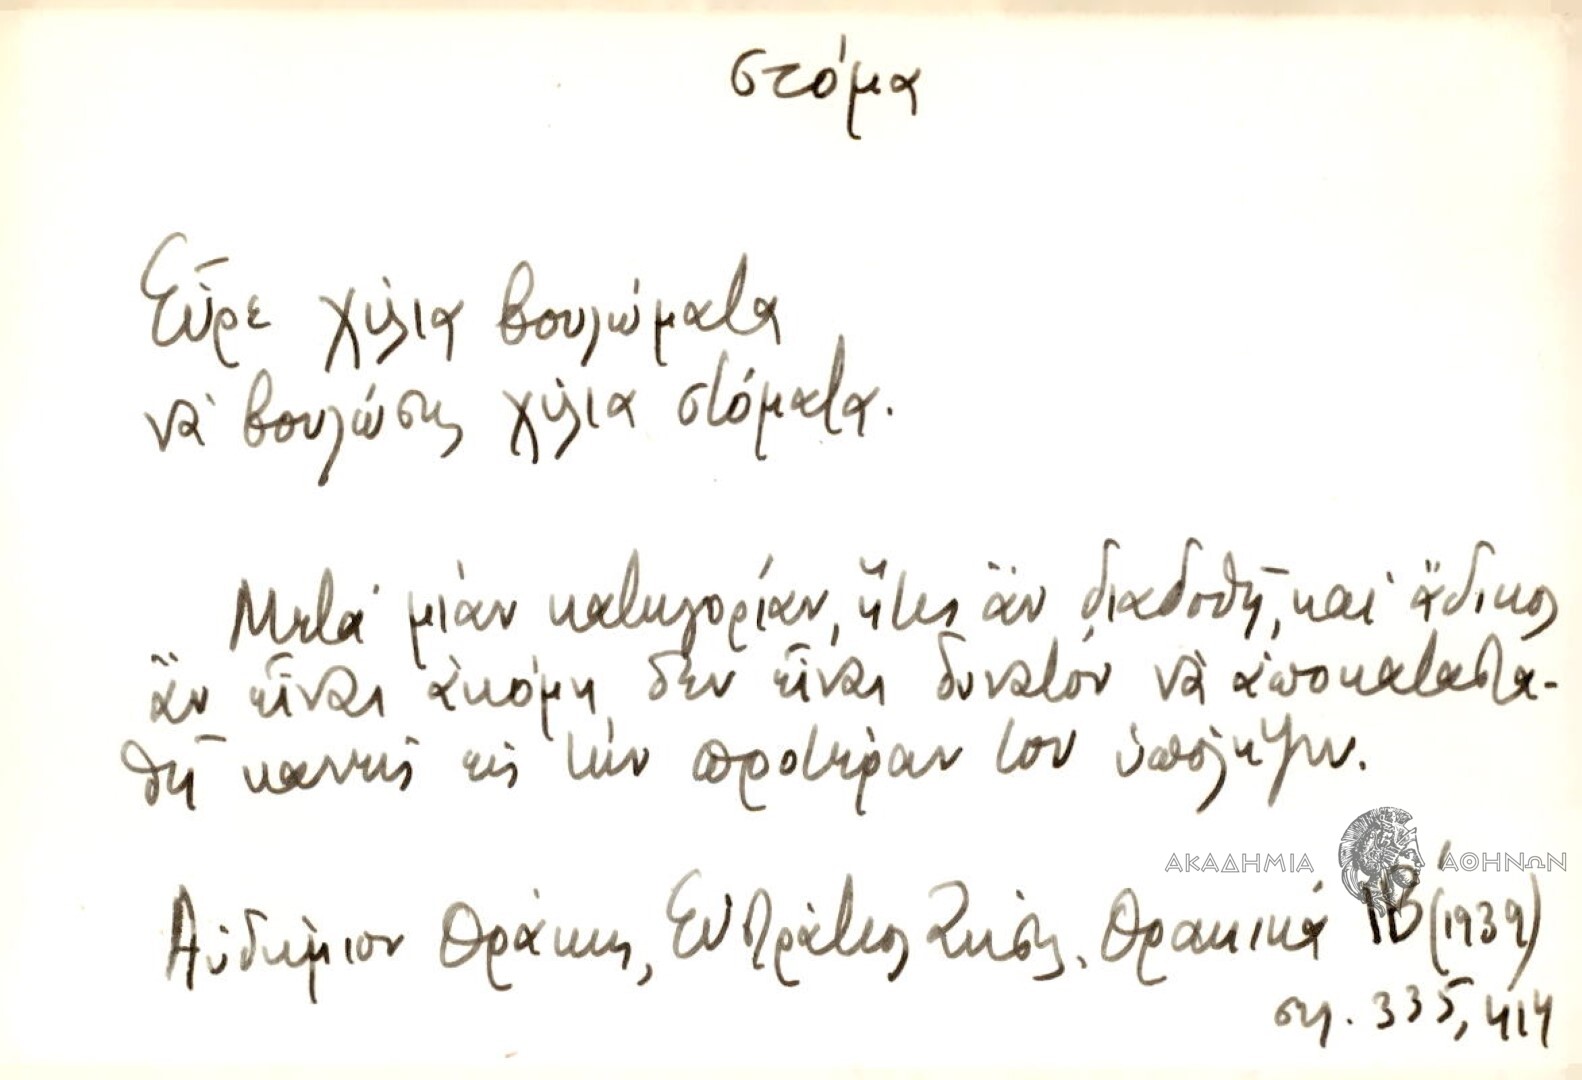 στόμα
Εὗρε χίλια βουλώματα
νὰ βουλώσης χίλια στόματα.
Μετὰ μίαν κατηγορίαν, ἥτις ἂν διαδοθῇ, καὶ ἄδικος
ἂν εἶναι ἀκόμη, δὲν εἶναι δυνατὸν νὰ ἀποκαταστα-
θῇ κανεὶς εἰς τὴν προτέραν του ὑπόληψιν.
ΑΚΑΔΗΜΙΑ ΑΘΗΝΩΝ
Αὐδήμιον Θράκης, Εὐστράτιος Ζήσης, Θρακικά ΙΒ΄ (1939)
σελ. 335, 414